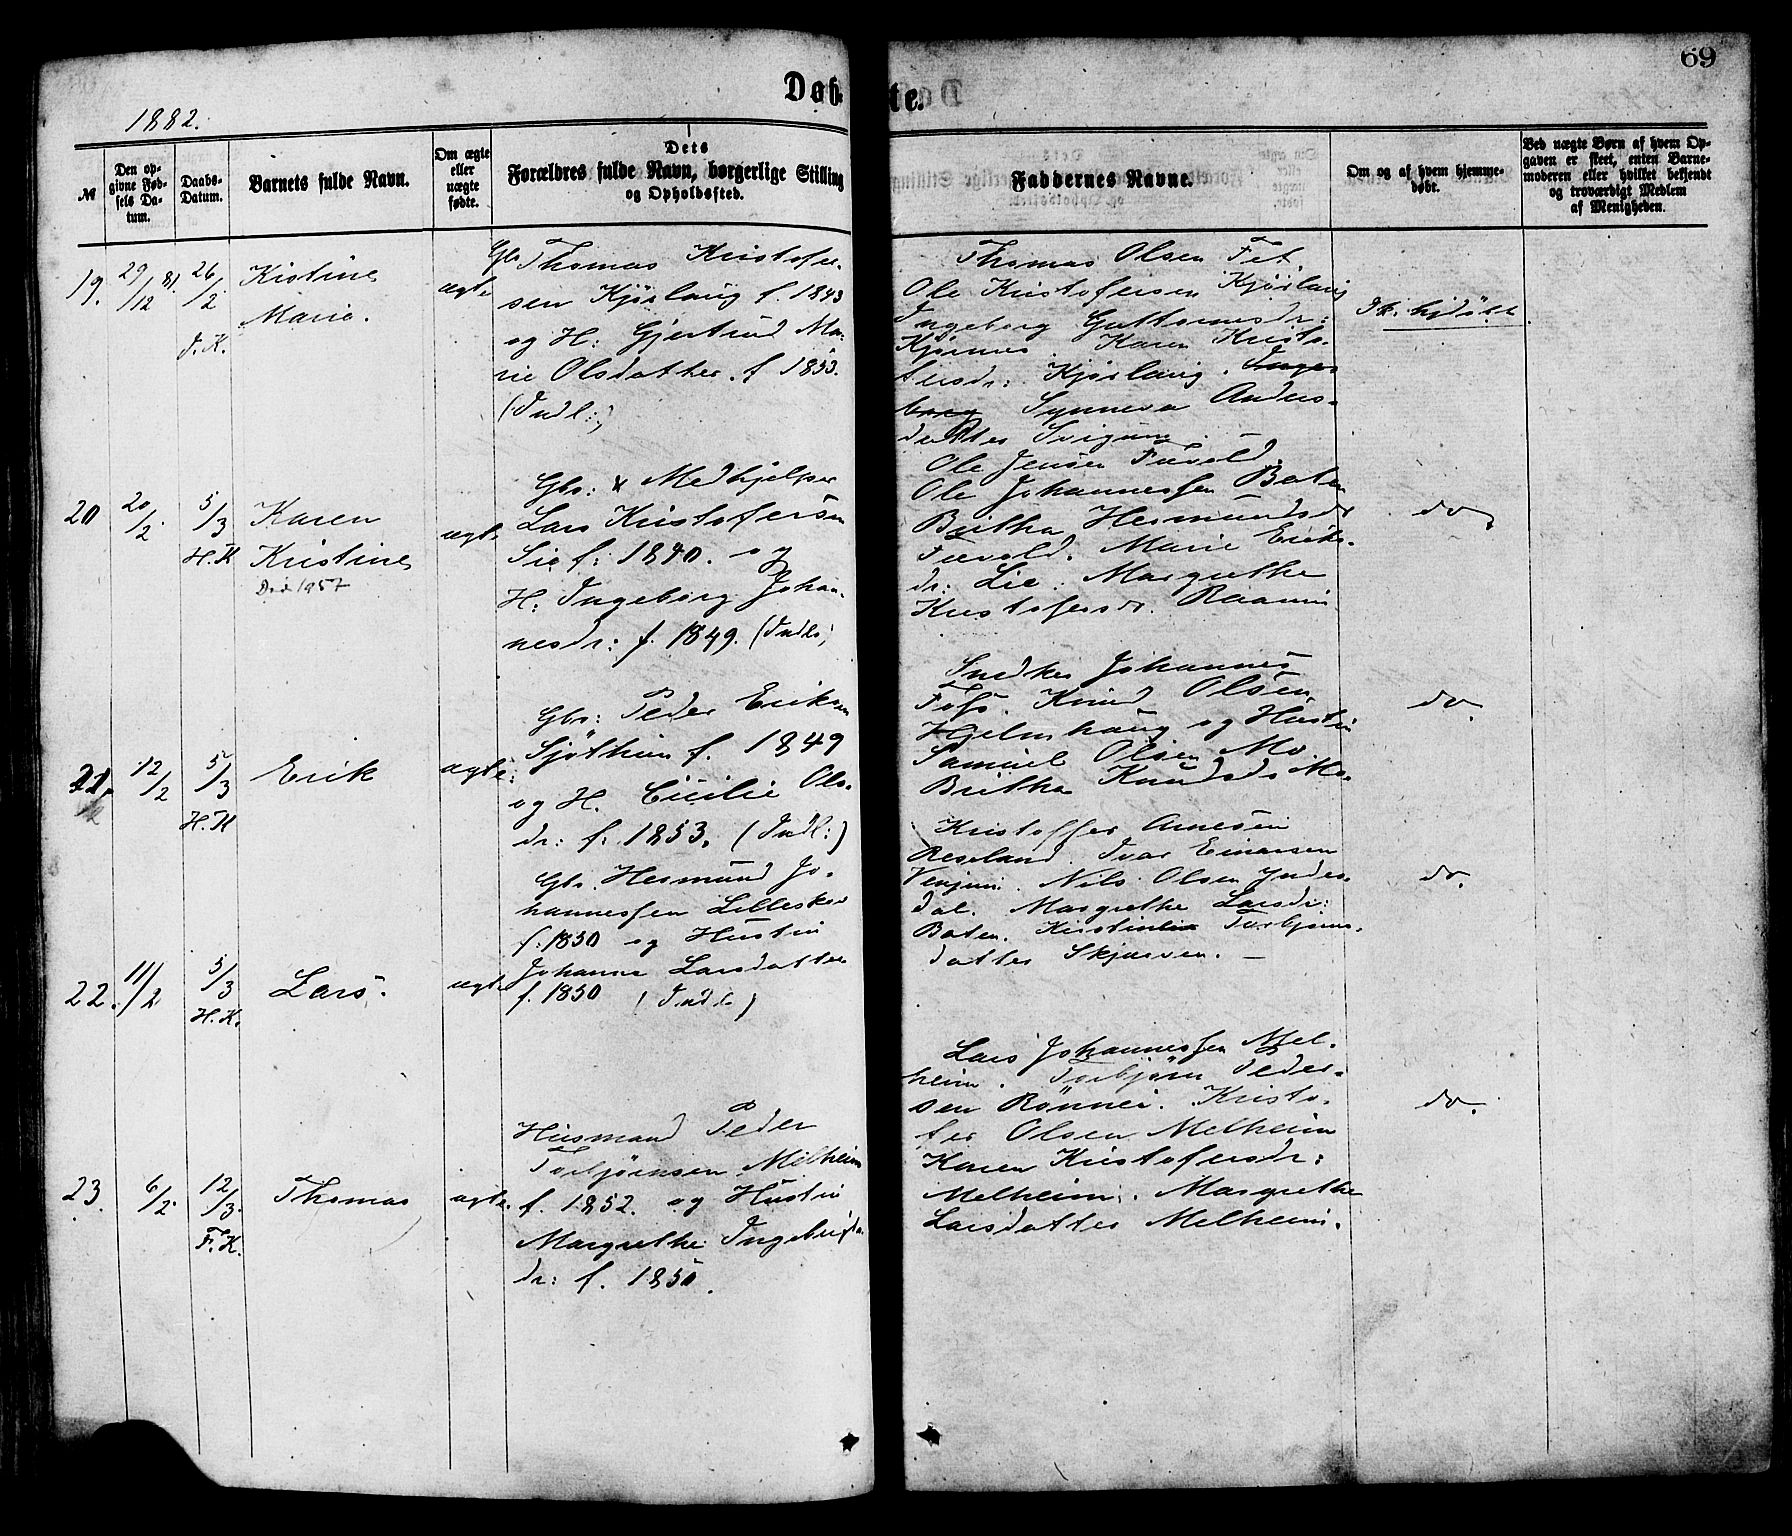 69
Døbte.
1882.
№
Den opgivne Fødsels Datum.
Daabs-Datum.
Barnets fulde Navn.
Om ægte eller uægte fødte.
Dets Forældres fulde Navn, borgerlige Stilling og Opholdssted.
Faddernes Navne.
Om og af hvem hjemmedøbt.
Ved uægte Børn af hvem Opgaven er skeet, enten Barnemoderen eller hvilket bekjendt og troværdigt Medlem af Menigheden.
19. 29/12 81. 26/2
Kistine
Marie.
ægte
Gbr Thomas Kristofer-
sen Kjørlaug f. 1843
og H: Gjertrud Ma-
rie Olsdatter. f 1853.
(Indl:)
Thomas Olsen Fet
Ole Kristofersen Kjørlaug
Ingeborg Guttormsdr:
Kjørnes. Karen Kristo-
fersdr: Kjørlaug. Inge-
borg Synneva Anders-
datter Svigum. —
20 20/2. 5/3 H.K
Karen
Kristine
Død 1957
ægte
Gbr: & Medhjelper
Lars Kristofersen
Lie f: 1840. og
H: Ingeborg Johan-
nesdr: f. 1849. (Indl:)
Ole Jensen Fuvold.
Ole Johannessen Baten
Britha Hermundsdr
Fuvold. Marie Eriks-
dr: Lie. Margrethe
Kristofersdr. Raaum
do.
21. 12/2 5/3 H.K
Erik
ægte:
Gbr: Peder Eriksen
Sjøthun f. 1849
og H. Cicilie Ols-
dr: f. 1853. (Indl:)
Snedker Johannes
Fos. Knud Olsen
Hjelmhaug og Hustru
Samuel Olsen Mo.
Britha Knudsdr Mo.
do.
22. 11/2 5/3 H.K.
Lars.
ægte
Gbr. Hermund Jo-
hannessen Lillesker
f: 1850 og Hustru
Johanne Larsdatter
f. 1850 (Indl.)
Kristoffer Arnesen
Reseland. Ivar Einarsen
Venjum. Nils Olsen Yndes-
dal. Margrethe Larsdr:
Baten. Kristine Torbjørns-
datter Skjærven. —
do.
23. 6/2. 12/3. F.K.
Thomas
ægte.
Husmand Peder
Torbjørnsen Melheim
f. 1852. og Hustru
Margrethe Ingebrigts-
dr: f. 1850.
Lars Johannessen Mel-
heim. Torbjørn Peder-
sen Rønnei. Kristo-
fer Olsen Melheim
Karen Kristofersdr:
Melheim. Margrethe
Larsdatter Melheim.
do.